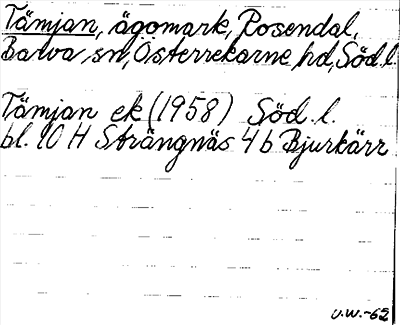 Tämjan, ägomark, Rosendal,
Barva sn, Österrekarne hd, Söd.l.
Tämjan ek (1958) Söd. l.
bl. 10 H Strängnäs 4 b Bjurkärr
U.W.-62